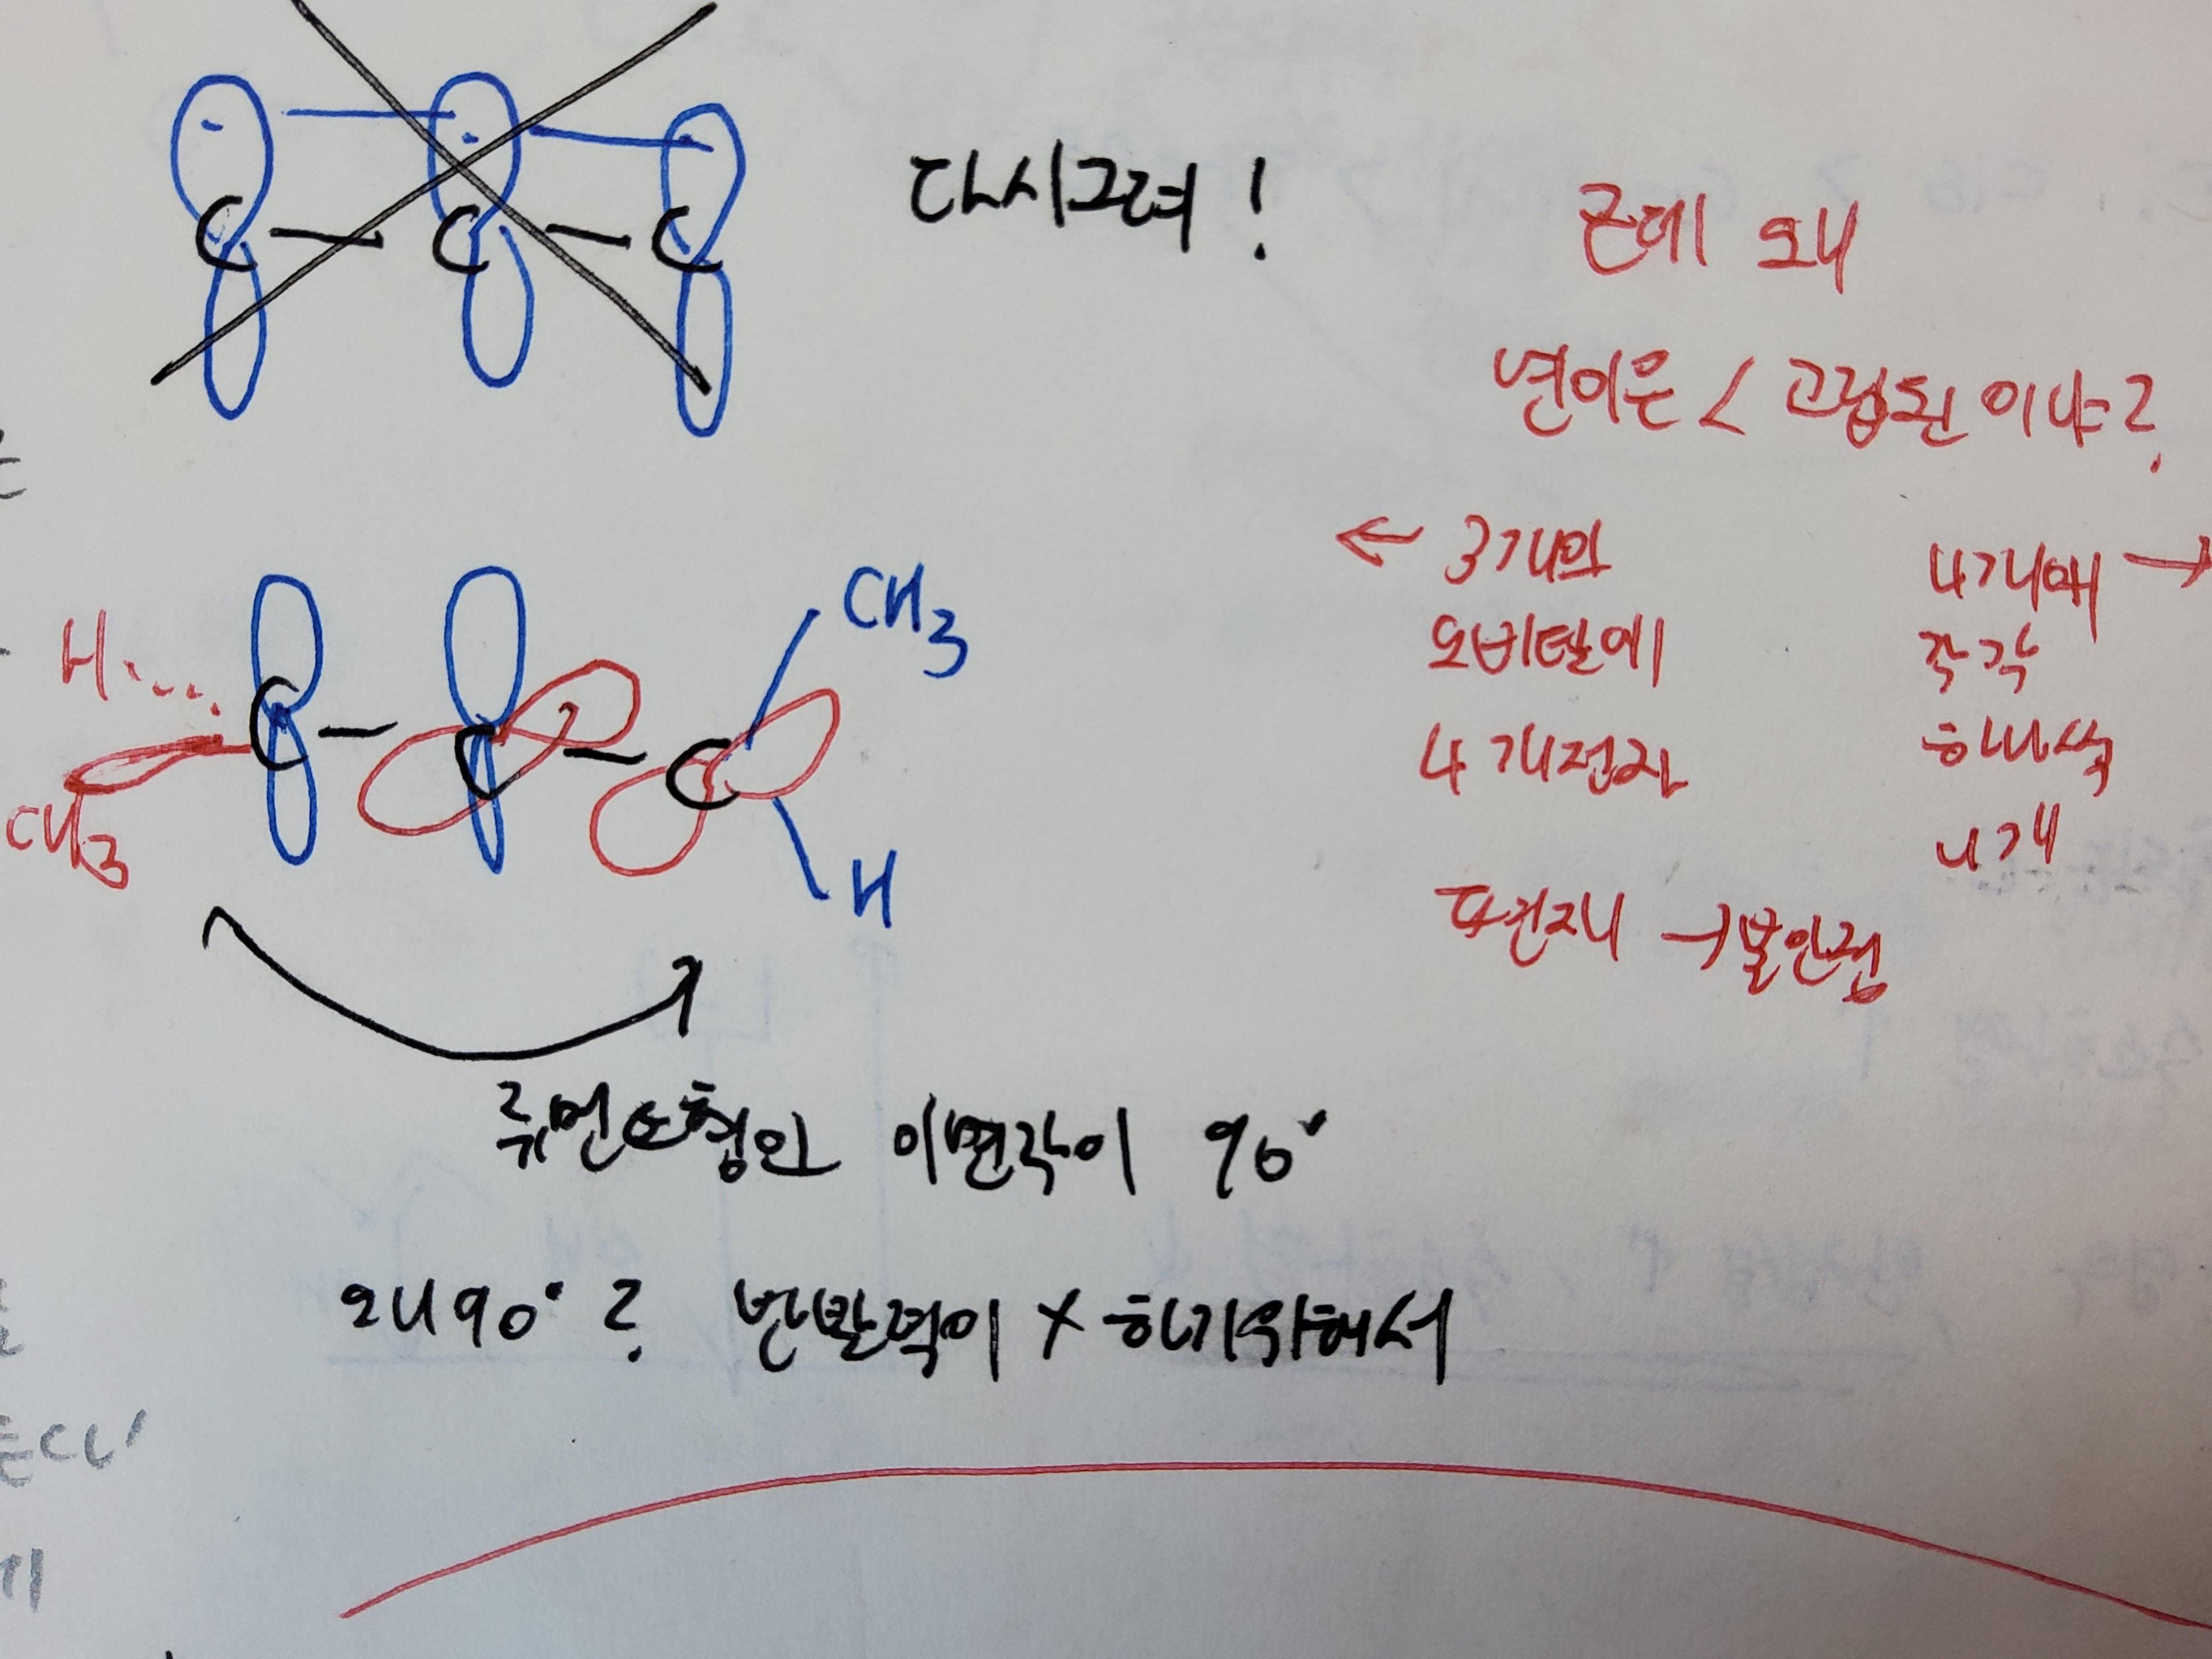 C - C - C
다시그려!
근데 왜
연이은 < 고립된 이야?
← 3개의
오비탈에
4개전자
4개에 →
각각
하나씩
4개
→불안정
H C - C - C CH3
CH3 H
이면각이 90°
왜90°? 반발력이 X 하기위해서